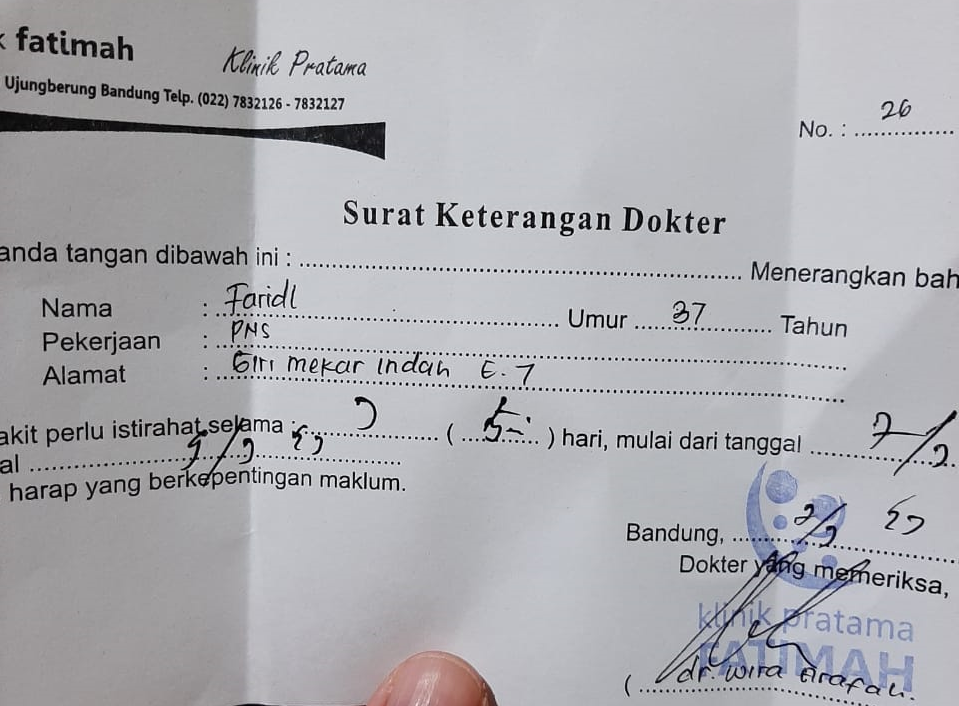 fatimah Klinik Pratama
Ujungberung Bandung Telp. (022) 7832126 - 7832127
No. : 26
Surat Keterangan Dokter
anda tangan dibawah ini : Menerangkan bah
Nama : Faridl Umur 37 Tahun
Pekerjaan : PNS
Alamat : Giri mekar indah E. 7
akit perlu istirahat selama : ( ) hari, mulai dari tanggal
al
harap yang berkepentingan maklum.
Bandung,
Dokter yang memeriksa,
klinik pratama
FATIMAH
( dr. wira Arafah.